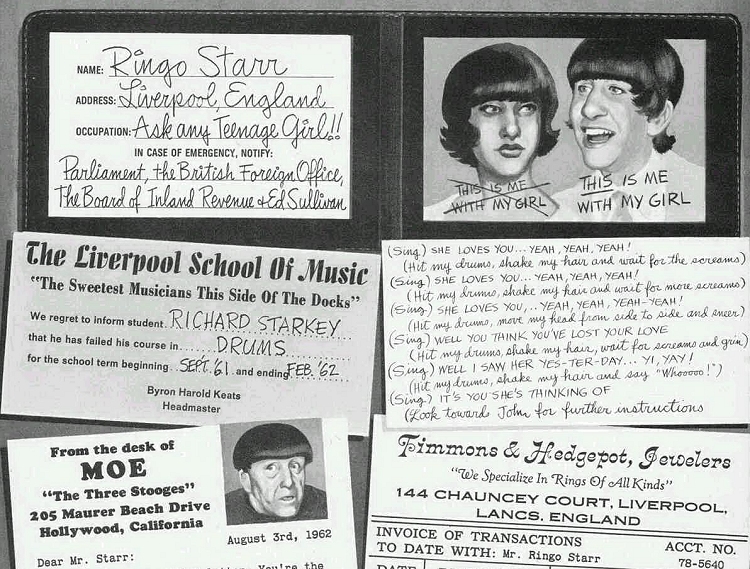 NAME: Ringo Starr
ADDRESS: Liverpool, England
OCCUPATION: Ask any Teenage Girl!!
IN CASE OF EMERGENCY, NOTIFY:
Parliament, the British Foreign Office,
The Board of Inland Revenue & Ed Sullivan
THIS IS ME
WITH MY GIRL
THIS IS ME
WITH MY GIRL
The Liverpool School Of Music
"The Sweetest Musicians This Side Of The Docks"
We regret to inform student RICHARD STARKEY
that he has failed his course in DRUMS
for the school term beginning SEPT. '61 and ending FEB. '62
Byron Harold Keats
Headmaster
(Sing) SHE LOVES YOU... YEAH, YEAH, YEAH!
(Hit my drums, shake my hair and wait for the screams)
(Sing) SHE LOVES YOU... YEAH, YEAH, YEAH!
(Hit my drums, shake my hair and wait for more screams)
(Sing) SHE LOVES YOU... YEAH, YEAH, YEAH-YEAH!
(Hit my drums, move my head from side to side and sneer)
(Sing) WELL YOU THINK YOU'VE LOST YOUR LOVE
(Hit my drums, shake my hair, wait for screams and grin)
(Sing) WELL I SAW HER YES-TER-DAY... YI, YAY!
(Hit my drums, shake my hair and say "Whoooo!")
(Sing) IT'S YOU SHE'S THINKING OF
(Look towards John for further instructions
From the desk of
MOE
"The Three Stooges"
205 Maurer Beach Drive
Hollywood, California
August 3rd, 1962
Dear Mr. Starr:
You're the
Timmons & Hedgepot, Jewelers
"We Specialize In Rings Of All Kinds"
144 CHAUNCEY COURT, LIVERPOOL,
LANCS. ENGLAND
INVOICE OF TRANSACTIONS
TO DATE WITH: Mr. Ringo Starr
ACCT. NO.
78-5640
DATE